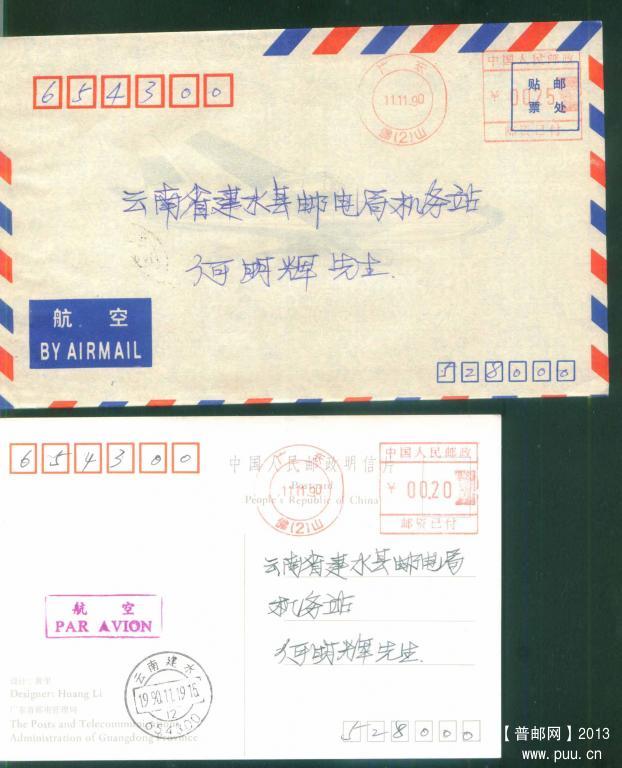 654300
广东
11.11.90
佛(2)山
中国人民邮政
¥ 00.25
邮资已付
贴邮
票处
云南省建水县邮电局机务站
何明辉先生.
航空
BY AIRMAIL
528000
654300
中国人民邮政明信片
Postcard
People's Republic of China
广东
11.11.90
佛(2)山
中国人民邮政
¥ 00.20
邮资已付
云南省建水县邮电局
机务站
何明辉先生.
航空
PAR AVION
云南建水
1990.11.19.16
12
654300
设计:黄里
Designer: Huang Li
广东省邮电管理局
The Posts and Telecommunications
Administration of Guangdong Province
528000
【普邮网】2013
www.puu.cn